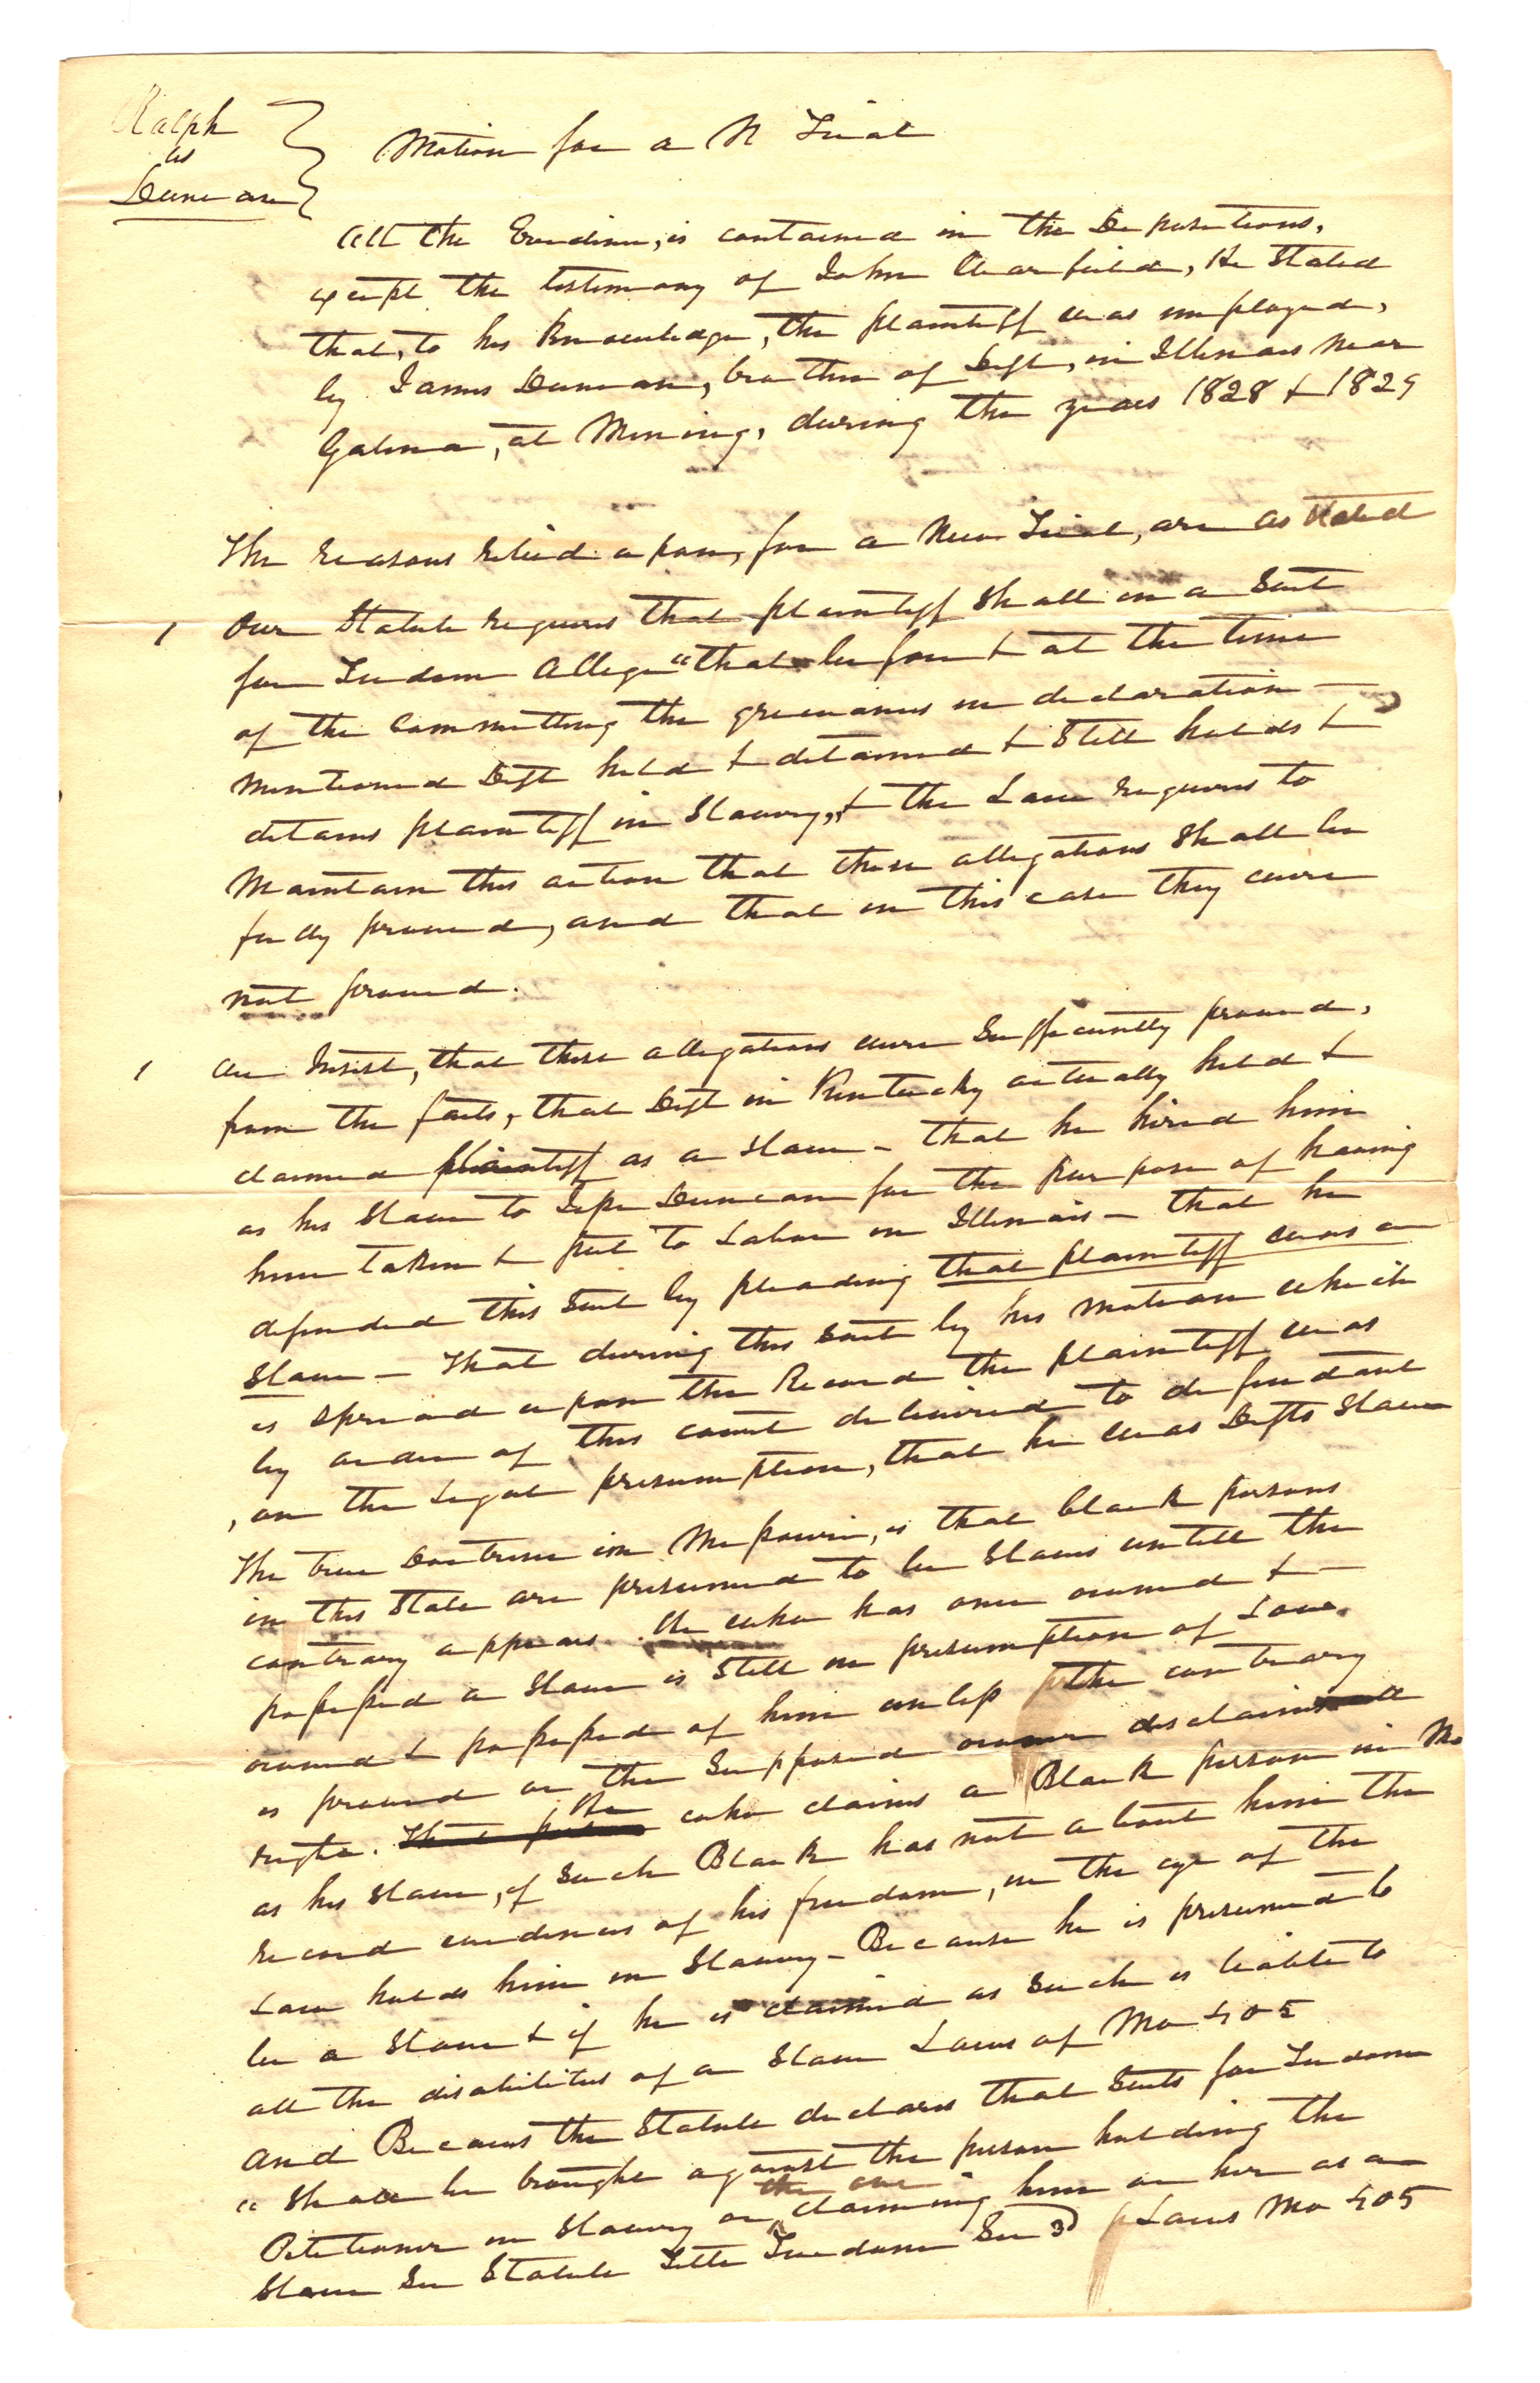 Ralph
vs
Duncan
Motion for a N Trial
All the Evidence, is contained in the Depositions,
except the testimony of John Clearfield, He Stated
that, to his Knowledge, the plaintiff was employed,
by James Duncan, brother of Deft, in Illinois near
Galena, at Mining, during the years 1828 & 1829
The reasons relied upon, for a New Trial, are as stated
1 Our Statute requires that plaintiff shall in a Suit
for Freedom Allege "that before & at the time
of the Committing the grievances in declaration —
mentioned Deft held & detained & Still holds &
detains plaintiff in Slavery," & the Law requires to
Maintain this action that these allegations Shall be
fully proved, and that in this case they were
not proved.
1 We Insist, that these allegations were Sufficiently proved,
from the facts, that Deft in Kentucky actually held &
claimed plaintiff as a Slave – that he hired him
as his Slave to Jesse Duncan for the purpose of having
him taken & put to Labor in Illinois – that he
defended this Suit by pleading that plaintiff was a
Slave – That during this Suit by his motion which
is Spread upon the Record the plaintiff was
by order of this court delivered to defendant
, on the Legal presumption, that he was Defts Slave
The true Doctrine in Missouri, is that black persons
in this State are presumed to be Slaves untill the
contrary appears. He who has once owned & —
possessed a Slave is Still in presumption of Law
owned & possessed of him unless the contrary
is proved or the Supposed owner disclaims all
right. He who claims a Black person in Mo
as his Slave, if Such Black has not about him the
record evidences of his freedom, in the eye of the
Law holds him in Slavery – Because he is presumed to
be a Slave & if he is claimed as Such is liable to
all the disabilities of a Slave Laws of Mo 405
And Because the Statute declares that Suits for Freedom
"Shall be brought against the person holding the
Petitioner in Slavery or the one claiming him or her as a
Slave See Statute Title Freedom Sec 3d p Laws Mo 405